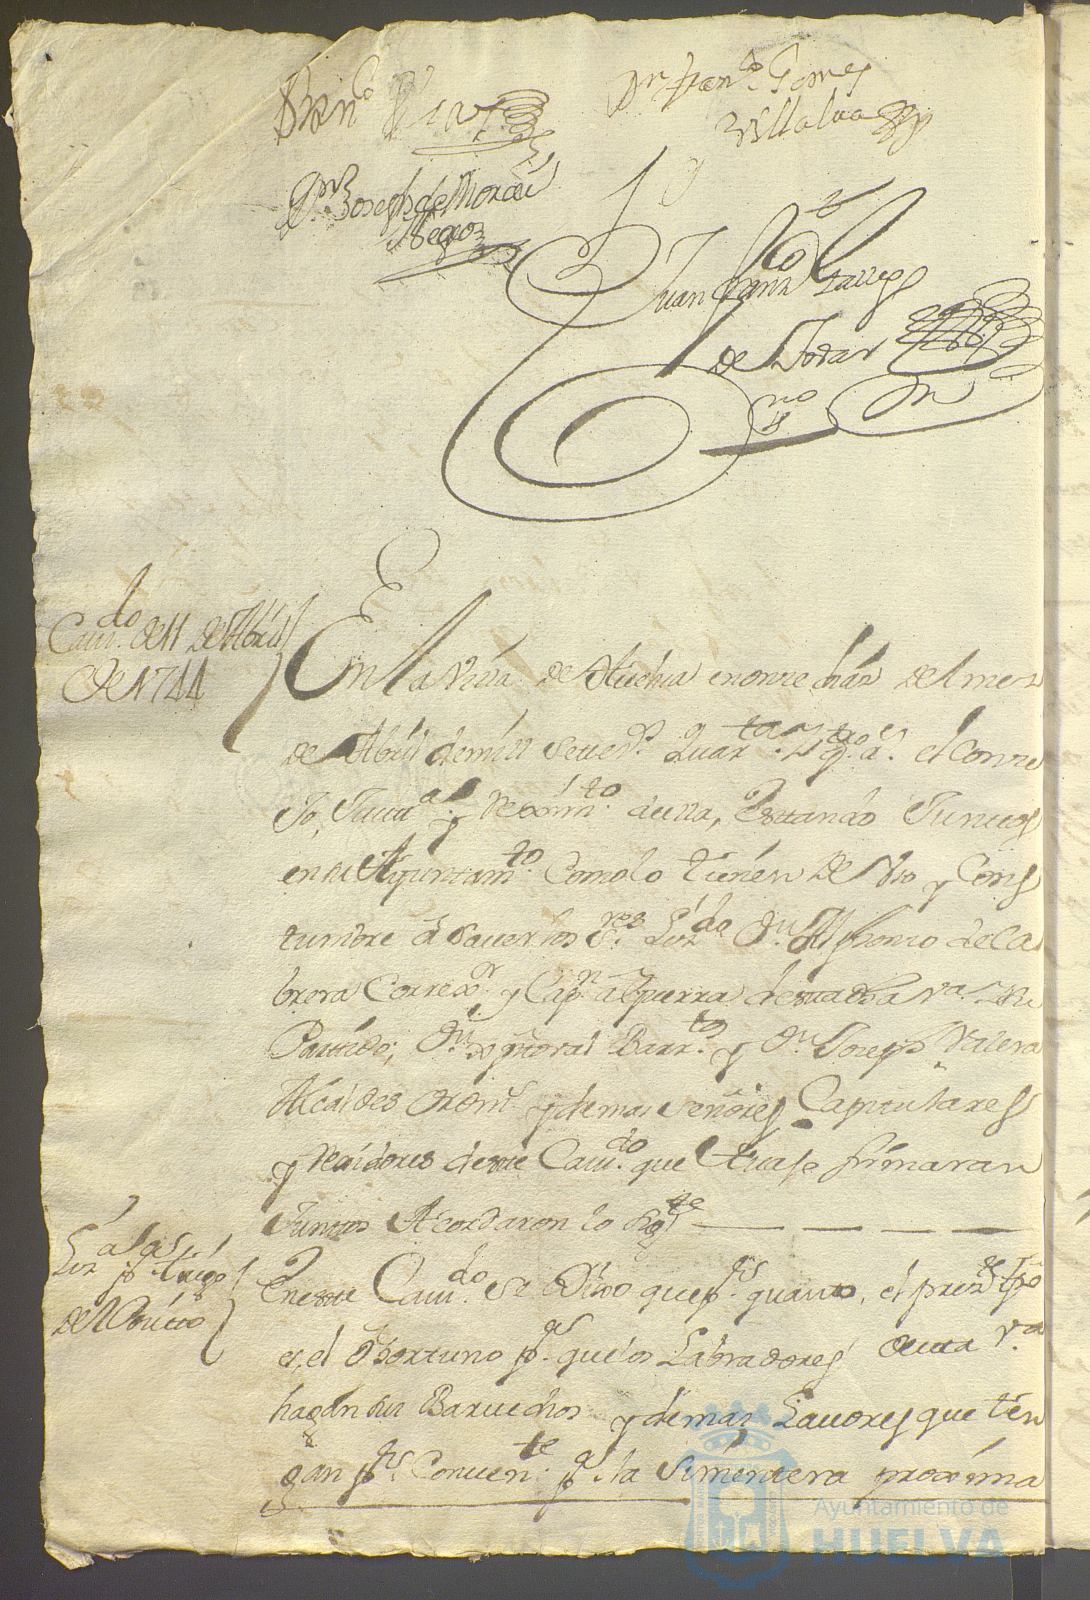 Dn. Franco. Gomes
Villalva
Dn. Joseph de Mora
Juan Franco.
de Tovar
Caudo. de 11 de Abril
de 1744
En la Villa de Huelva en onze dias del mes
de Abril de mill setezs. quarta. y qtro. as. el Conze
jo, Justa. y Reximto. de ella, estando Juntos
en su Ayuntamto. como lo tienen de Vso y Cos
tumbre es a saver los Sres. Lizdo. Dn. Alphonso de Ca
brera Correxor. y Capn. a Guerra de esta dha va. y su
Partido; Dn. Barrto. y Dn. Joseph Valera
Alcaldes ordins. y demas señores Capitulares
y Rexidores de este Caudo. que avajo firmaran
Juntos Acordaron lo sigte.
Lizas. pa. trigo
del Posito
En este Caudo. se Dixo que pr. quanto, el preste. tpo
es, el oportuno pa. que los Labradores de esta va.
hagan sus Barvechos y demas Lavores que ten
gan pr. Convente. pa. la simentera proxima
Ayuntamiento de
HUELVA